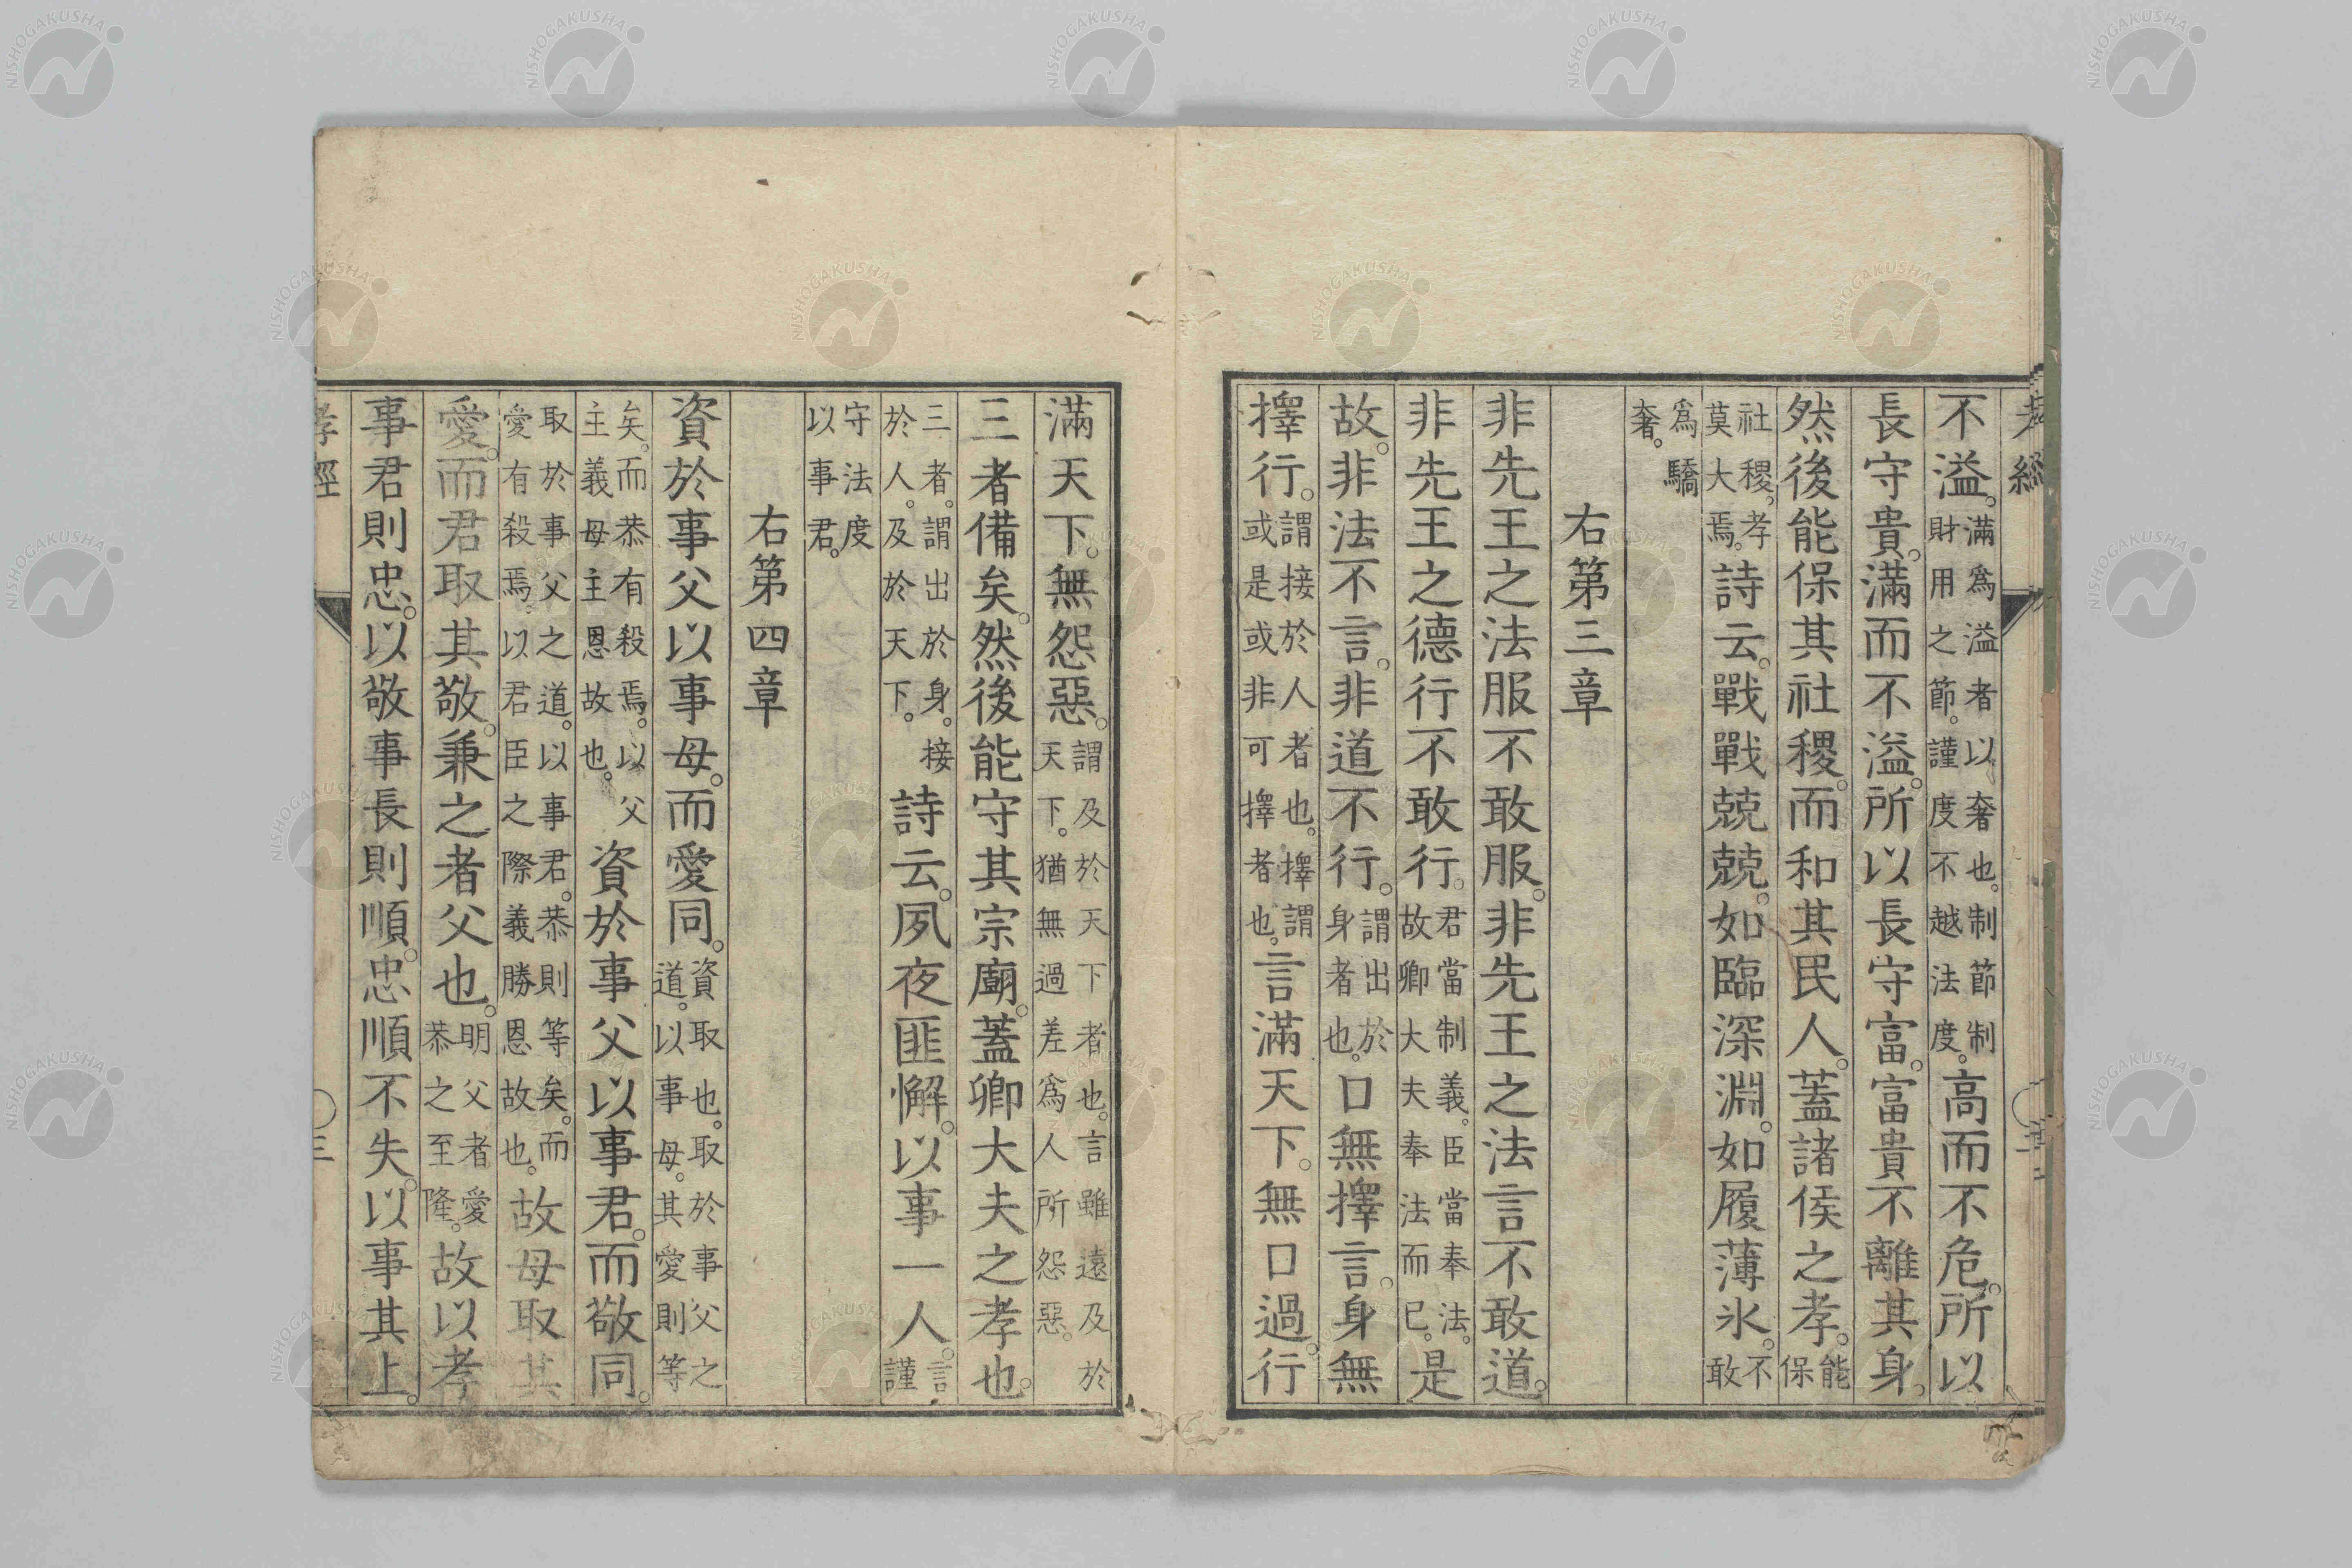 孝經 二
不溢。滿爲溢者以奢也。制節制財用之節。謹度不越法度。高而不危。所以
長守貴。滿而不溢。所以長守富。富貴不離其身。
然後能保其社稷。而和其民人。蓋諸侯之孝。能保
社稷、孝莫大焉。詩云。戰戰兢兢。如臨深淵。如履薄氷。不敢
爲驕奢。
右第三章
非先王之法服不敢服。非先王之法言不敢道。
非先王之德行不敢行。君當制義。臣當奉法。故卿大夫奉法而已。是
故。非法不言。非道不行。謂出於身者也。口無擇言。身無
擇行。謂接於人者也。擇謂或是或非可擇者也。言滿天下。無口過。行
滿天下。無怨惡。謂及於天下者也。言雖遠及於天下。猶無過差爲人所怨惡。
三者備矣。然後能守其宗廟。蓋卿大夫之孝也。
三者。謂出於身。接於人。及於天下。詩云。夙夜匪懈。以事一人。言謹
守法度以事君。
右第四章
資於事父以事母。而愛同。資取也。取於事父之道。以事母。其愛則等
矣。而恭有殺焉。以父主義母主恩故也。資於事父以事君。而敬同。
取於事父之道。以事君。恭則等矣。而愛有殺焉。以君臣之際義勝恩故也。故母取其
愛。而君取其敬。兼之者父也。明父者愛恭之至隆。故以孝
事君則忠。以敬事長則順。忠順不失。以事其上。
孝經 三
NISHOGAKUSHA